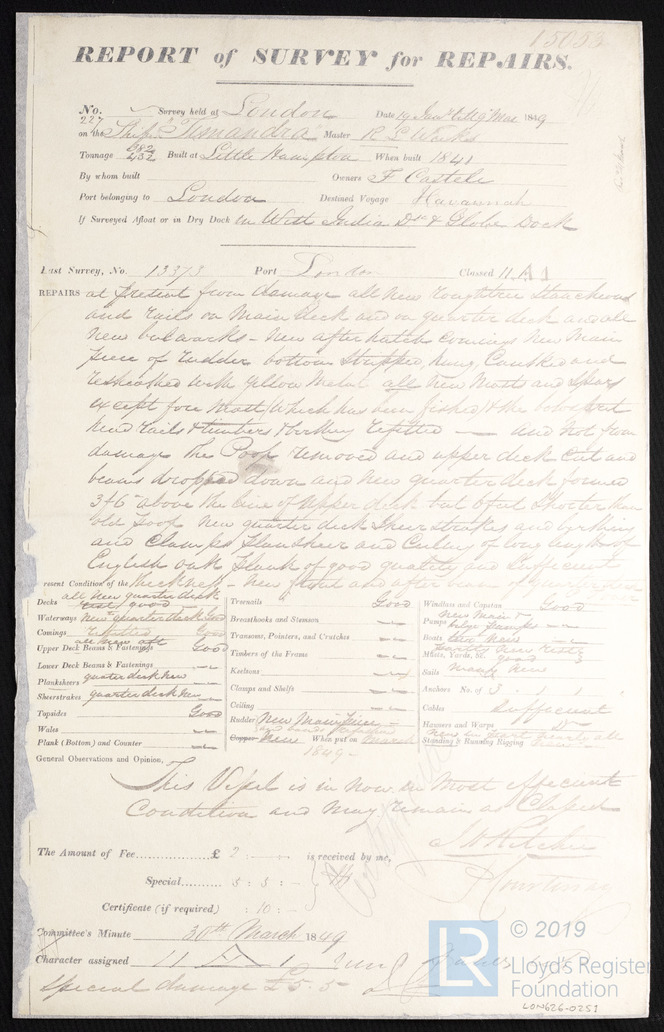 15053
REPORT of SURVEY for REPAIRS.
No. 227 Survey held at London Date 19 Jany till 19 Mar 1849
on the Ship "Timandra" Master R L Weeks
Tonnage 382 432 Built at Little Hampton When built 1841
By whom built Owners F Castelli
Port belonging to London Destined Voyage Havannah
If Surveyed Afloat or in Dry Dock in West India Dk & Globe Dock
Last Survey, No. 13373 Port London Classed 11 A 1
REPAIRS at Present from damage all New roughtree Stancheons
and rails on Main deck and on quarter deck and all
new bulwarks - New after hatch comings New Main
Piece of rudder bottom Stripped, hung, Caulked and
resheathed with yellow Metal all New Masts and Spars
except fore Mast (which has been fished) & the bowsprit
head rails & timbers & berthing refitted — and Not from
damage The Poop removed and upper deck Cut and
beams dropped down and new quarter deck formed
3ft 6 above the line of upper deck but 6 feet Shorter than
old Poop New quarter deck Sheerstrakes and
and Clamps Plansheer and Ceiling of long lengths of
English oak Plank of good quality and Sufficient
resent Condition of the thickness - New front and after
Decks all New quarter deck good
Waterways New quarter deck Good
Comings refitted Good
Upper Deck Beams & Fastenings all new aft Good
Lower Deck Beams & Fastenings
Planksheers quarter deck New
Sheerstrakes quarter deck New
Topsides Good
Wales
Plank (Bottom) and Counter
Treenails Good
Breasthooks and Stemson
Transoms, Pointers, and Crutches
Timbers of the Frame
Keelsons
Clamps and Shelfs
Ceiling
Rudder New Main Piece
Copper New When put on March
1849
Windlass and Capstan Good
Pumps New Main & bilge Pumps
Boats
Masts, Yards, &c. partly New Rest good
Sails many New
Anchors No. of 3 1 1
Cables Sufficient
Hawsers and Warps Do
Standing & Running Rigging New in part nearly all New
General Observations and Opinion,
This Vessel is in now in Most efficient
Condition and May remain as Classed
The Amount of Fee £ 2 : - : - is received by me,
J H Ritchie
Special 5 : 5 : -
P Courtenay
Certificate (if required) : 10 : -
Committee's Minute 30th March 1849
Character assigned 11 A 1
Special damage £5.5
LR
© 2019
Lloyd's Register
Foundation
LON626-0251